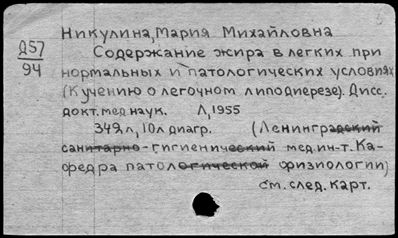 Никулина, Мария Михайловна
Д57
94
Содержание жира в легких при
нормальных и патологических условиях
(К учению о легочном липодиерезе). Дисс.
докт. мед наук. Л, 1955
349 л, 10 л диагр. (Ленинградский
санитарно-гигиенический мед. ин-т. Ка-
федра патологической физиологии)
см. след. карт.